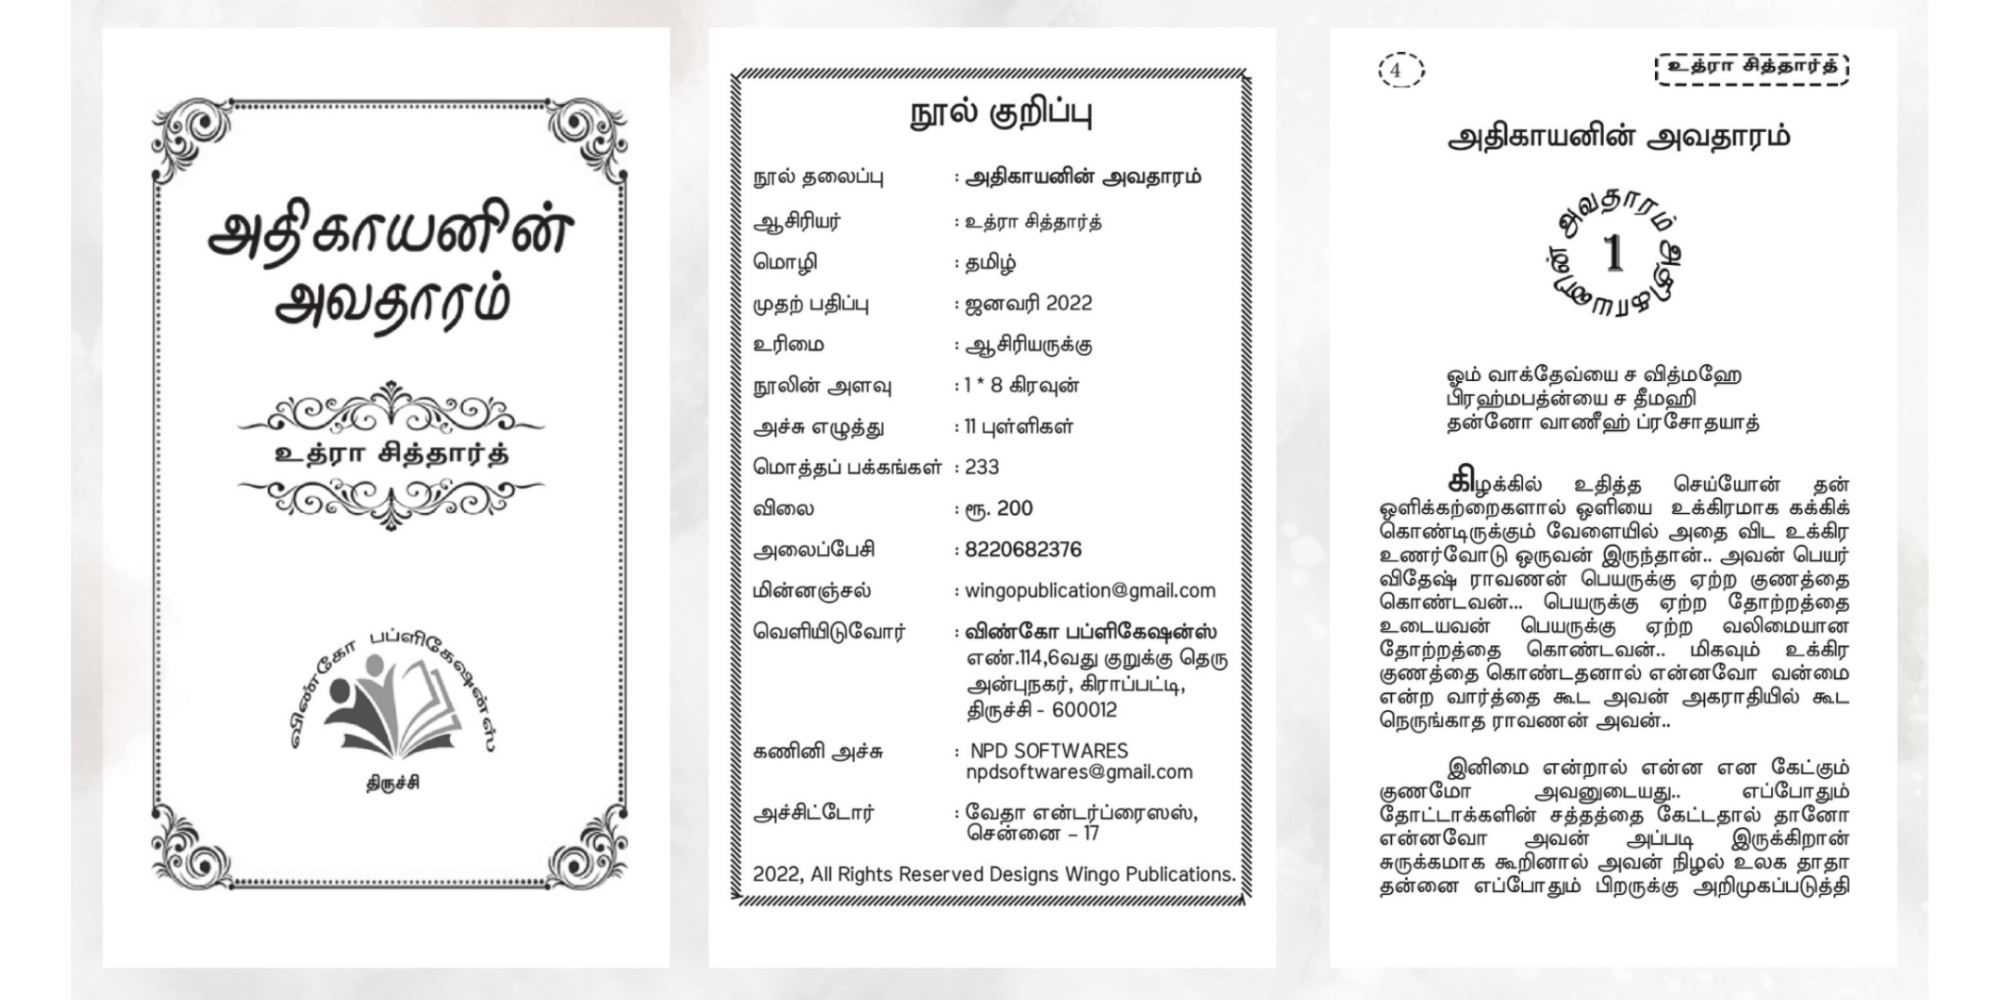 அதிகாயனின்
அவதாரம்
உத்ரா சித்தார்த்
விண்கோ பப்ளிகேஷன்ஸ்
திருச்சி
நூல் குறிப்பு
நூல் தலைப்பு : அதிகாயனின் அவதாரம்
ஆசிரியர் : உத்ரா சித்தார்த்
மொழி : தமிழ்
முதற் பதிப்பு : ஜனவரி 2022
உரிமை : ஆசிரியருக்கு
நூலின் அளவு : 1 * 8 கிரவுன்
அச்சு எழுத்து : 11 புள்ளிகள்
மொத்தப் பக்கங்கள் : 233
விலை : ரூ. 200
அலைப்பேசி : 8220682376
மின்னஞ்சல் : wingopublication@gmail.com
வெளியிடுவோர் : விண்கோ பப்ளிகேஷன்ஸ்
எண்.114,6வது குறுக்கு தெரு
அன்புநகர், கிராப்பட்டி,
திருச்சி - 600012
கணினி அச்சு : NPD SOFTWARES
npdsoftwares@gmail.com
அச்சிட்டோர் : வேதா என்டர்ப்ரைஸஸ்,
சென்னை – 17
2022, All Rights Reserved Designs Wingo Publications.
4
உத்ரா சித்தார்த்
அதிகாயனின் அவதாரம்
அதிகாயனின் அவதாரம்
1
ஓம் வாக்தேவ்யை ச வித்மஹே
பிரஹ்மபத்ன்யை ச தீமஹி
தன்னோ வாணீஹ் ப்ரசோதயாத்
கிழக்கில் உதித்த செய்யோன் தன்
ஒளிக்கற்றைகளால் ஒளியை உக்கிரமாக கக்கிக்
கொண்டிருக்கும் வேளையில் அதை விட உக்கிர
உணர்வோடு ஒருவன் இருந்தான்.. அவன் பெயர்
விதேஷ் ராவணன் பெயருக்கு ஏற்ற குணத்தை
கொண்டவன்... பெயருக்கு ஏற்ற தோற்றத்தை
உடையவன் பெயருக்கு ஏற்ற வலிமையான
தோற்றத்தை கொண்டவன்.. மிகவும் உக்கிர
குணத்தை கொண்டதனால் என்னவோ வன்மை
என்ற வார்த்தை கூட அவன் அகராதியில் கூட
நெருங்காத ராவணன் அவன்..
இனிமை என்றால் என்ன என கேட்கும்
குணமோ அவனுடையது.. எப்போதும்
தோட்டாக்களின் சத்தத்தை கேட்டதால் தானோ
என்னவோ அவன் அப்படி இருக்கிறான்
சுருக்கமாக கூறினால் அவன் நிழல் உலக தாதா
தன்னை எப்போதும் பிறருக்கு அறிமுகப்படுத்தி